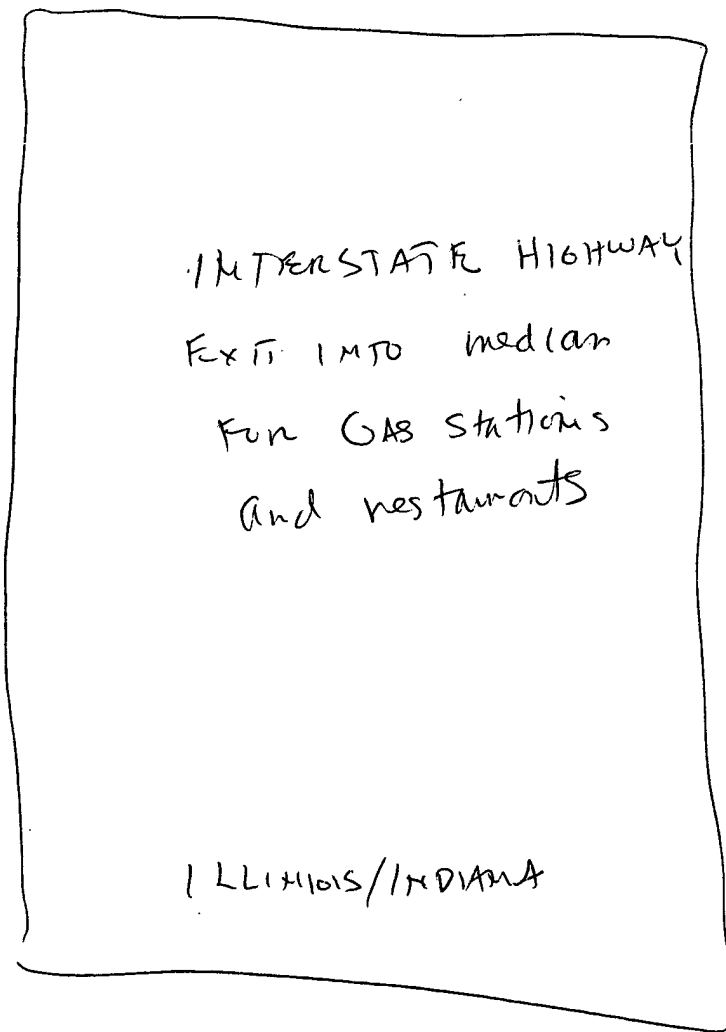 INTERSTATE HIGHWAY
EXIT INTO median
For GAS stations
and restaurants
ILLINIOIS/INDIANA